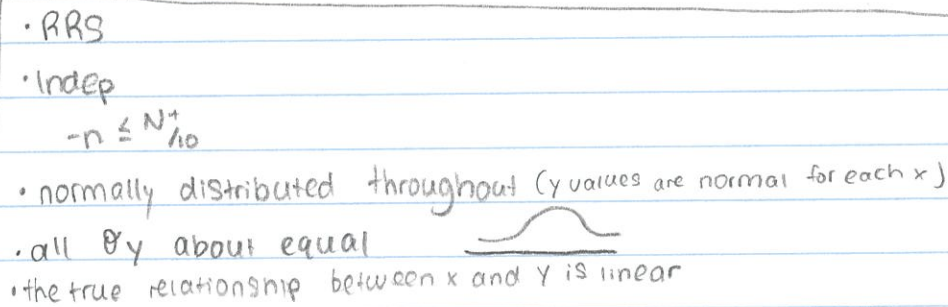 • RRS
• Indep
- n ≤ N+/10
• normally distributed throughout (y values are normal for each x)
• all σy about equal
• the true relationship between x and y is linear